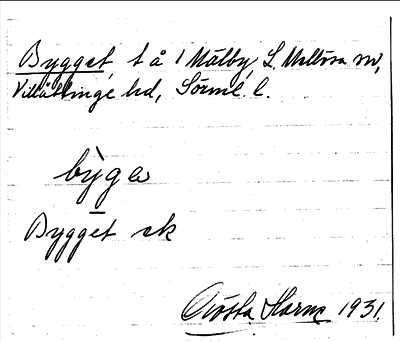 Bygget, t å 1 Målby, L. Mellösa sn,
Villåttinge hd, Sörml. l.
by̍ga
Bygget sk
Gösta Harms 1931.